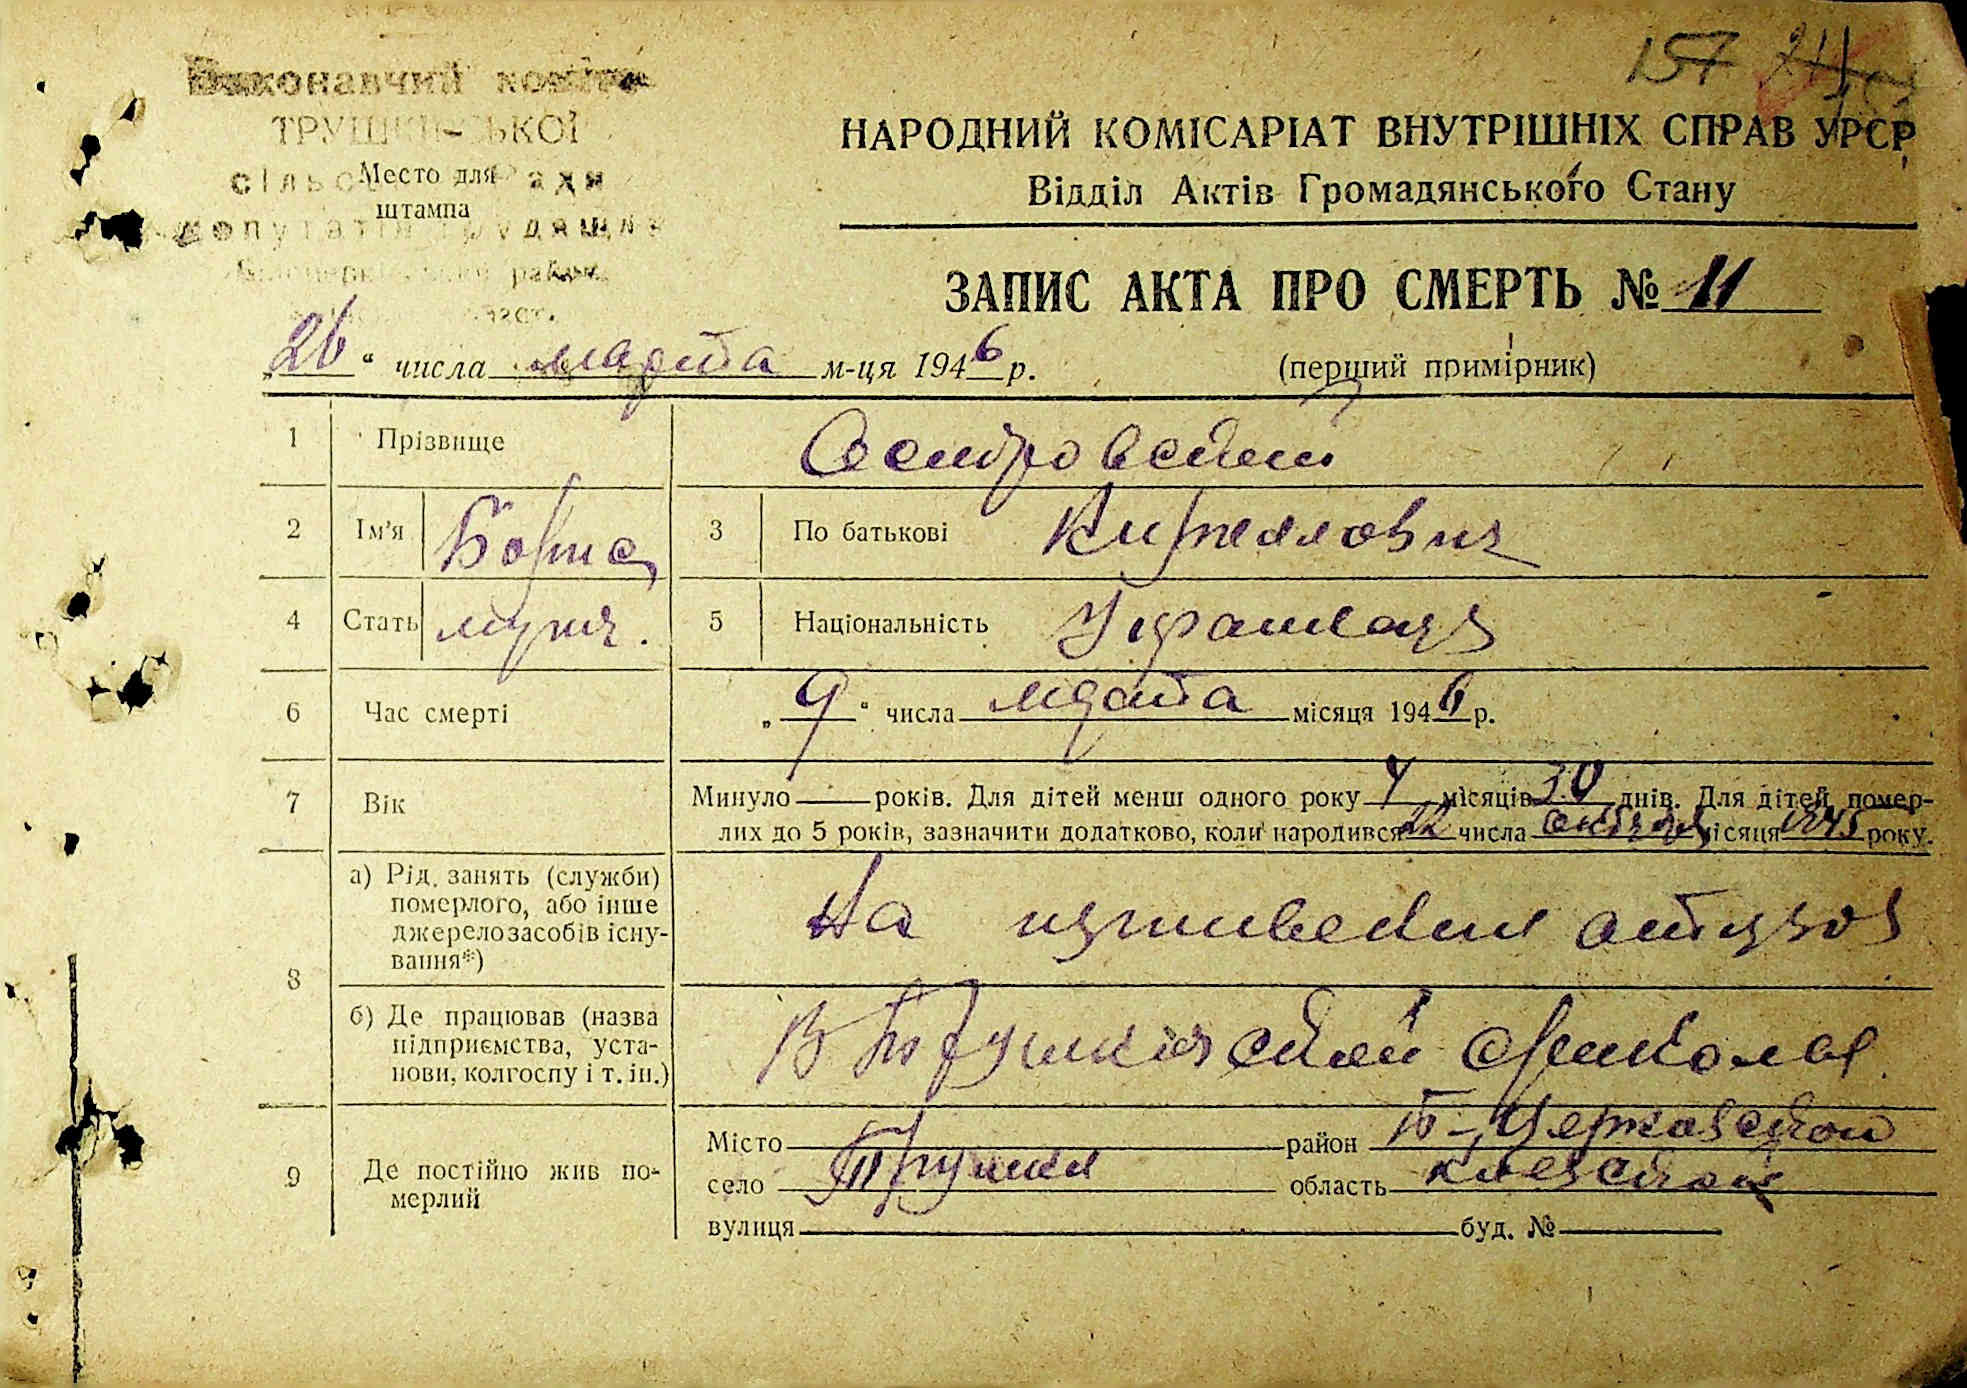 157
Виконавчий коміте
ТРУШКІВСЬКОЇ
Место для
штампа
депутатів трудящих
НАРОДНИЙ КОМІСАРІАТ ВНУТРІШНІХ СПРАВ УРСР
Відділ Актів Громадянського Стану
ЗАПИС АКТА ПРО СМЕРТЬ № 11
„26“ числа марта м-ця 1946 р.
(перший примірник)
1 Прізвище
2 Ім'я Борис 3 По батькові Кириллович
4 Стать мужч. 5 Національність Украинец
6 Час смерті „9“ числа марта місяця 1946 р.
7 Вік Минуло — років. Для дітей менш одного року 4 місяців 30 днів. Для дітей помер-
лих до 5 років, зазначити додатково, коли народився 22 числа октября місяця 1945 року.
8 а) Рід занять (служби)
померлого, або інше
джерело засобів існу-
вання*)
На иждивении отцов
б) Де працював (назва
підприємства, уста-
нови, колгоспу і т. ін.)
В Трушкинской
9 Де постійно жив по-
мерлий
Місто район Б-Церковской
село Трушки область Киевской
вулиця буд. №